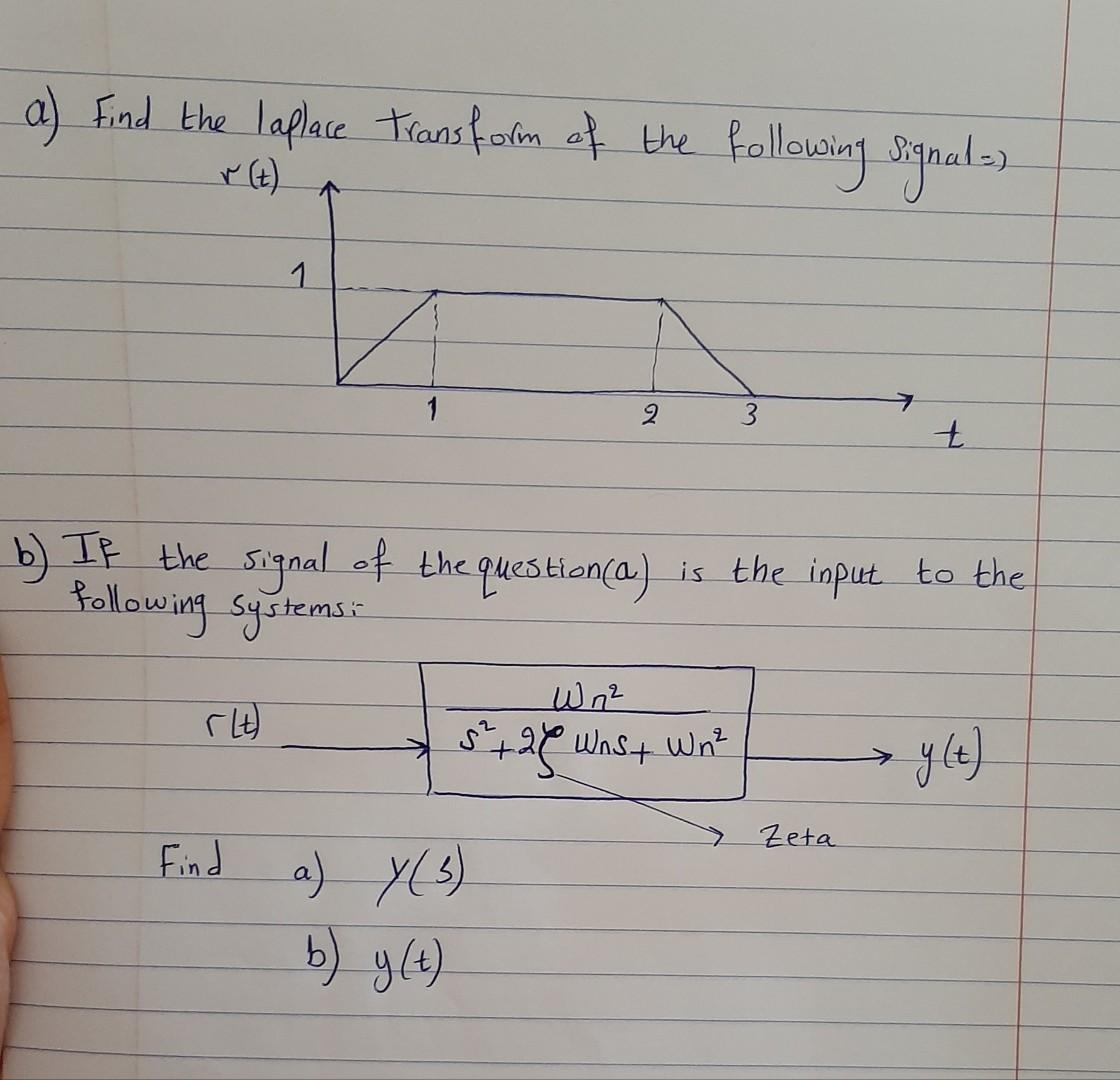 a) Find the laplace Transform of the following Signal=)
r(t)
1
1 2 3
t
b) If the signal of the question(a) is the input to the
following systems:-
Wn²
r(t) s²+2ζ Wns+ Wn² y(t)
Zeta
Find a) Y(s)
b) y(t)